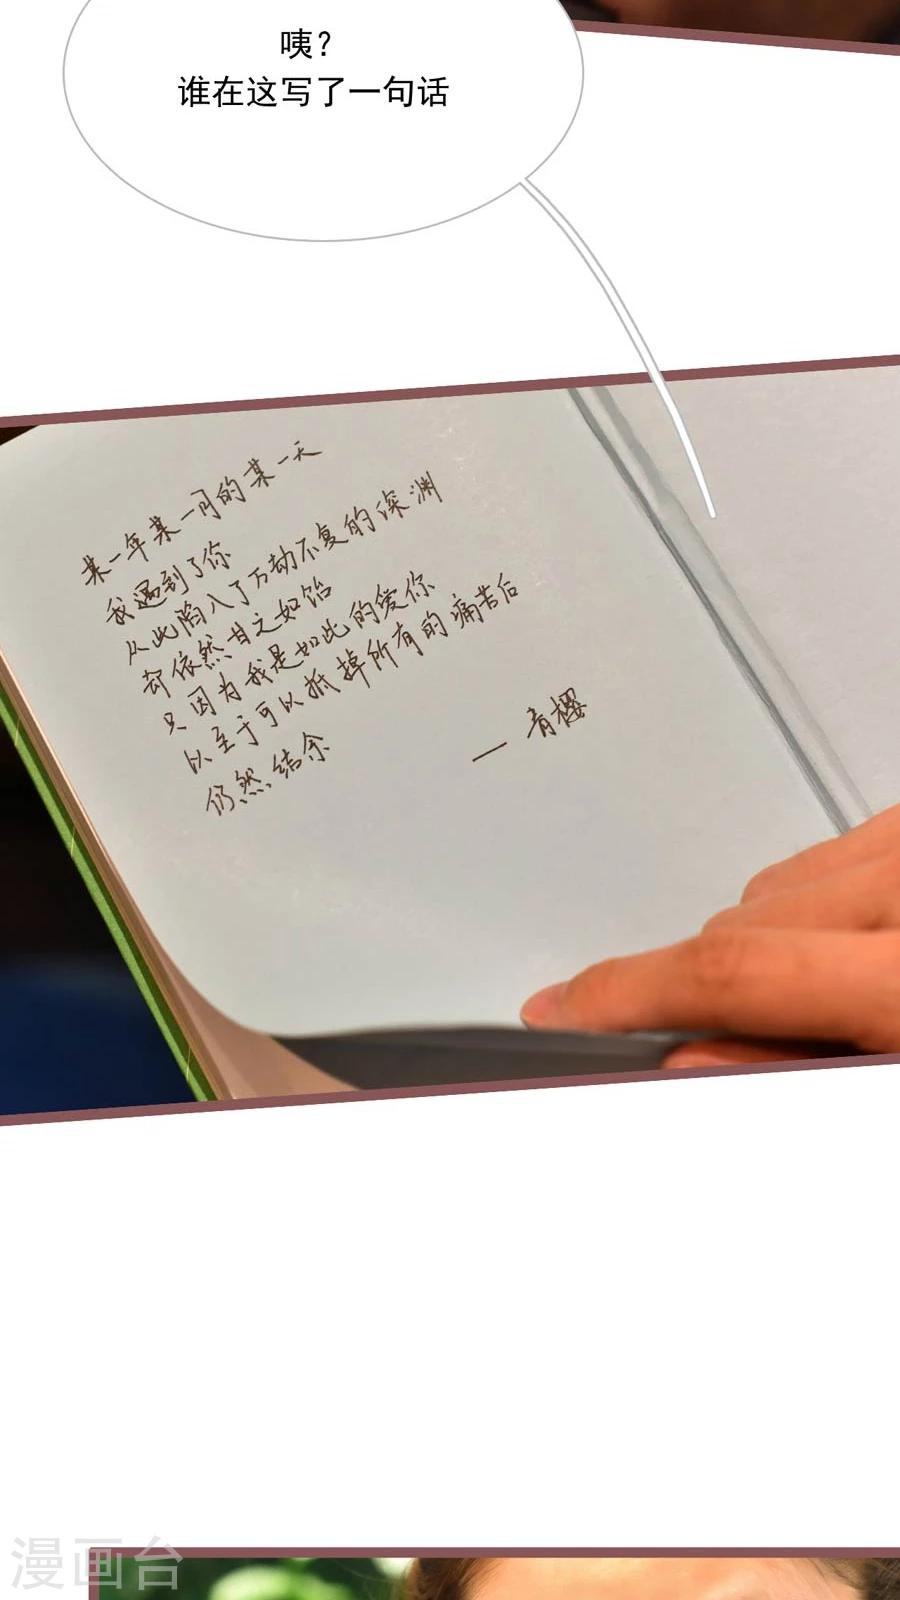 咦?
谁在这写了一句话
某一年某一月的某一天
我遇到了你
从此陷入了万劫不复的深渊
却依然甘之如饴
只因为我是如此的爱你
以至于可以抵掉所有的痛苦后
仍然结余
— 青樱
漫画台